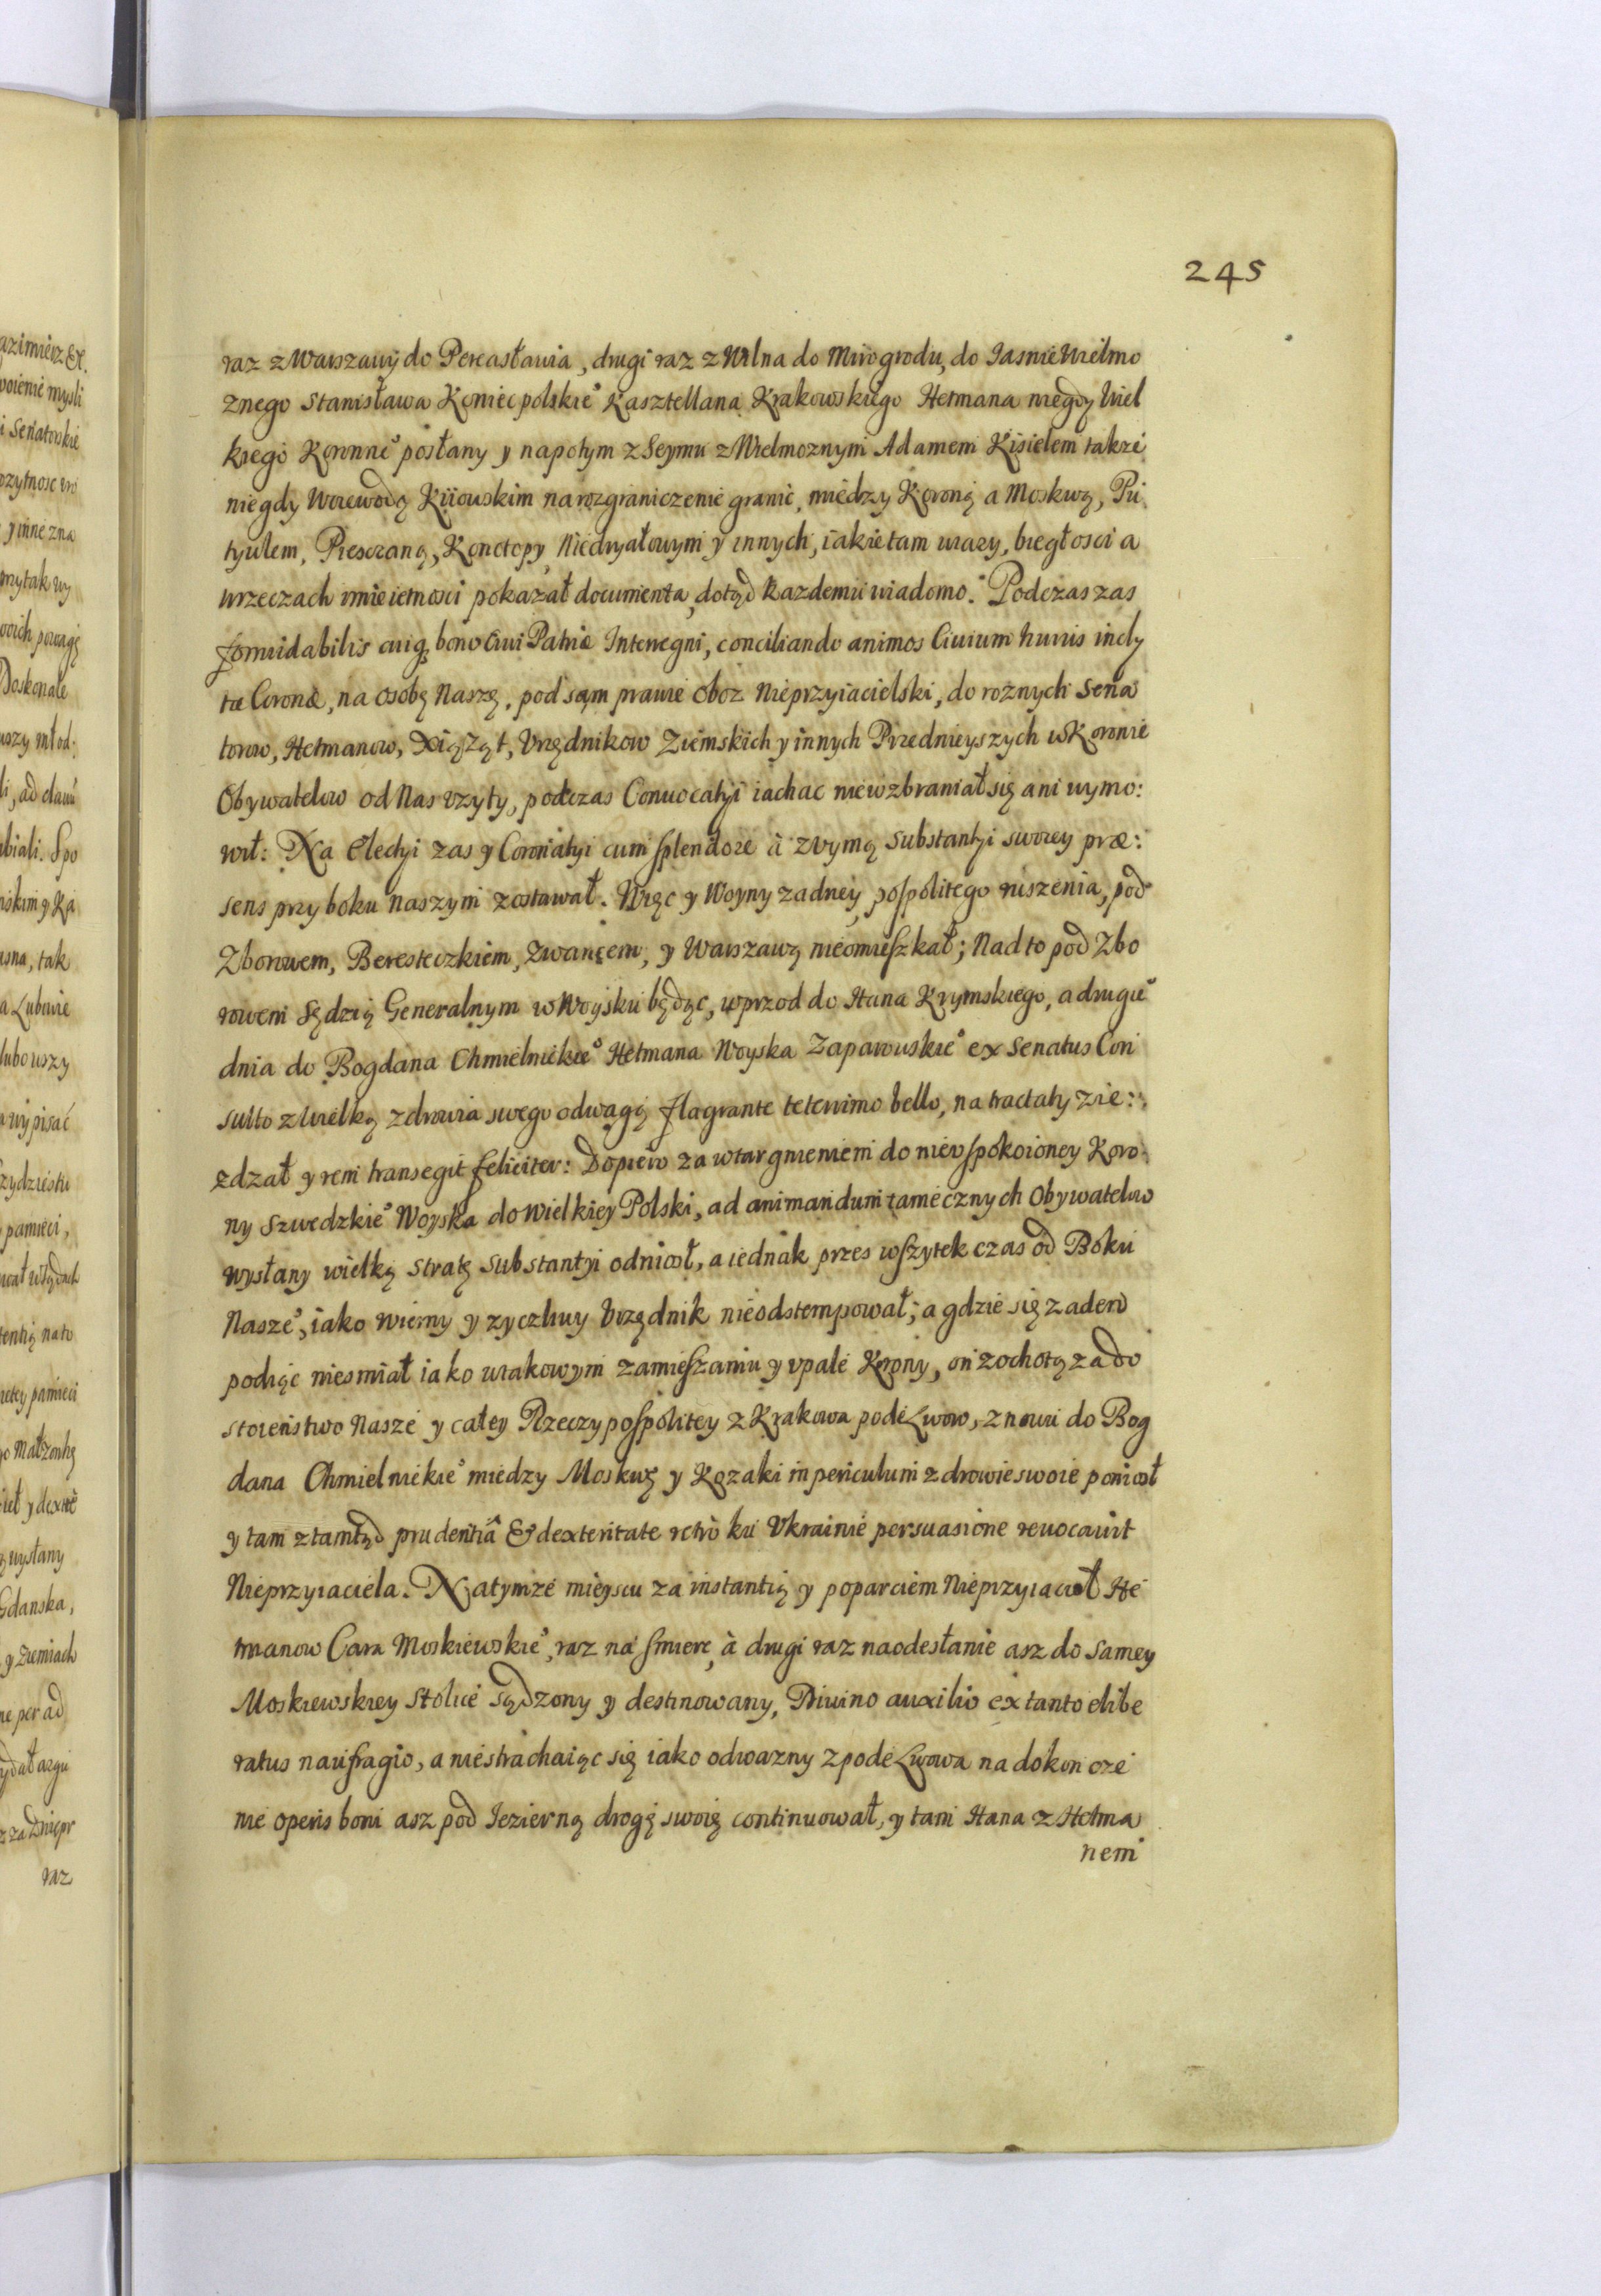 245
raz z Warszawy do Pereasławia, drugi raz z Wilna do Mirogrodu, do Jasnie Wielmo
znego Stanisława Koniecpolskie° Kasztellana Krakowskiego Hetmana niegdy Wiel
kiego Koronne° posłany y napotym z Seymu z Wielmoznym Adamem Kisielem takze
niegdy Woiewodą Kiiowskim na rozgraniczenie granic, miedzy Koroną a Moskwą, Pu
tywlem, Piesczaną, Konotopy y innych, iakie tam urazy, biegłosci a
w rzeczach umieietnosci pokazał documenta, dotąd kazdemu wiadomo. Podczas zas
formidabilis cuiq, bono Ciui Patriæ Interregni, conciliando animos Ciuium huius incly
tæ Coronæ, na osobę Naszę, pod sam prawie oboz Nieprzyiacielski, do roznych Sena
torow, Hetmanow, Xiążąt, Vrzędnikow Ziemskich y innych Przednieyszych w Koronie
Obywatelow od Nas vzyty, podczas Conuocatyi iachac niewzbraniał się ani wymo:
wił: Na Electyi zas y Coronatyi cum splendore à z vymą substantyi swoiey præ:
sens przy boku naszym zostawał. Więc y Woyny zadney, pospolitego ruszenia, pod
Zborowem, Beresteczkiem, Zwancem, y Warszawą nieomieszkał; Nad to pod Zbo
rowem Sędzią Generalnym w Woysku będąc, wprzod do Hana Krymskiego, a drugie°
dnia do Bogdana Chmielnickie° Hetmana Woyska Zaparouskie° ex Senatus Con
sulto z wielką zdrowia swego odwagą flagrante teterrimo bello, na tractaty zie:
zdzał y rem transegit feliciter: Dopiero za wtargnieniem do nieuspokoioney Koro:
ny Szwedzkie° Woyska do Wielkiey Polski, ad animandum tamecznych Obywatelow
wysłany wielką stratę substantyi odniosł, a iednak przes wszytek czas od Boku
Nasze°, iako wierny y zyczliwy Vrzędnik nieodstempował; a gdzie się zaden
podiąc niesmiał iako w takowym zamieszaniu y vpale Korony, on z ochotą za do
stoienstwo Nasze y całey Rzeczypospolitey z Krakowa pode Lwow, znowu do Bog
dana Chmielnickie° miedzy Moskwę y Kozaki in periculum zdrowie swoie poniosł
y tam ztamtąd prudentiâ & dexteritate retro ku Vkrainie persuasione reuocauit
Nieprzyiaciela. Na tymze mieyscu za instantią y poparciem Nieprzyiacioł He
tmanow Cara Moskiewskie°, raz na smierc, à drugi raz na odesłanie asz do samey
Moskiewskiey Stolice sądzony y destinowany, Diuino auxilio ex tanto elibe
ratus naufragio, a niestrachaiąc się iako odwazny z pode Lwowa na dokoncze
nie operis boni asz pod Jezierną drogę swoię continuował, y tam Hana z Hetma
nem